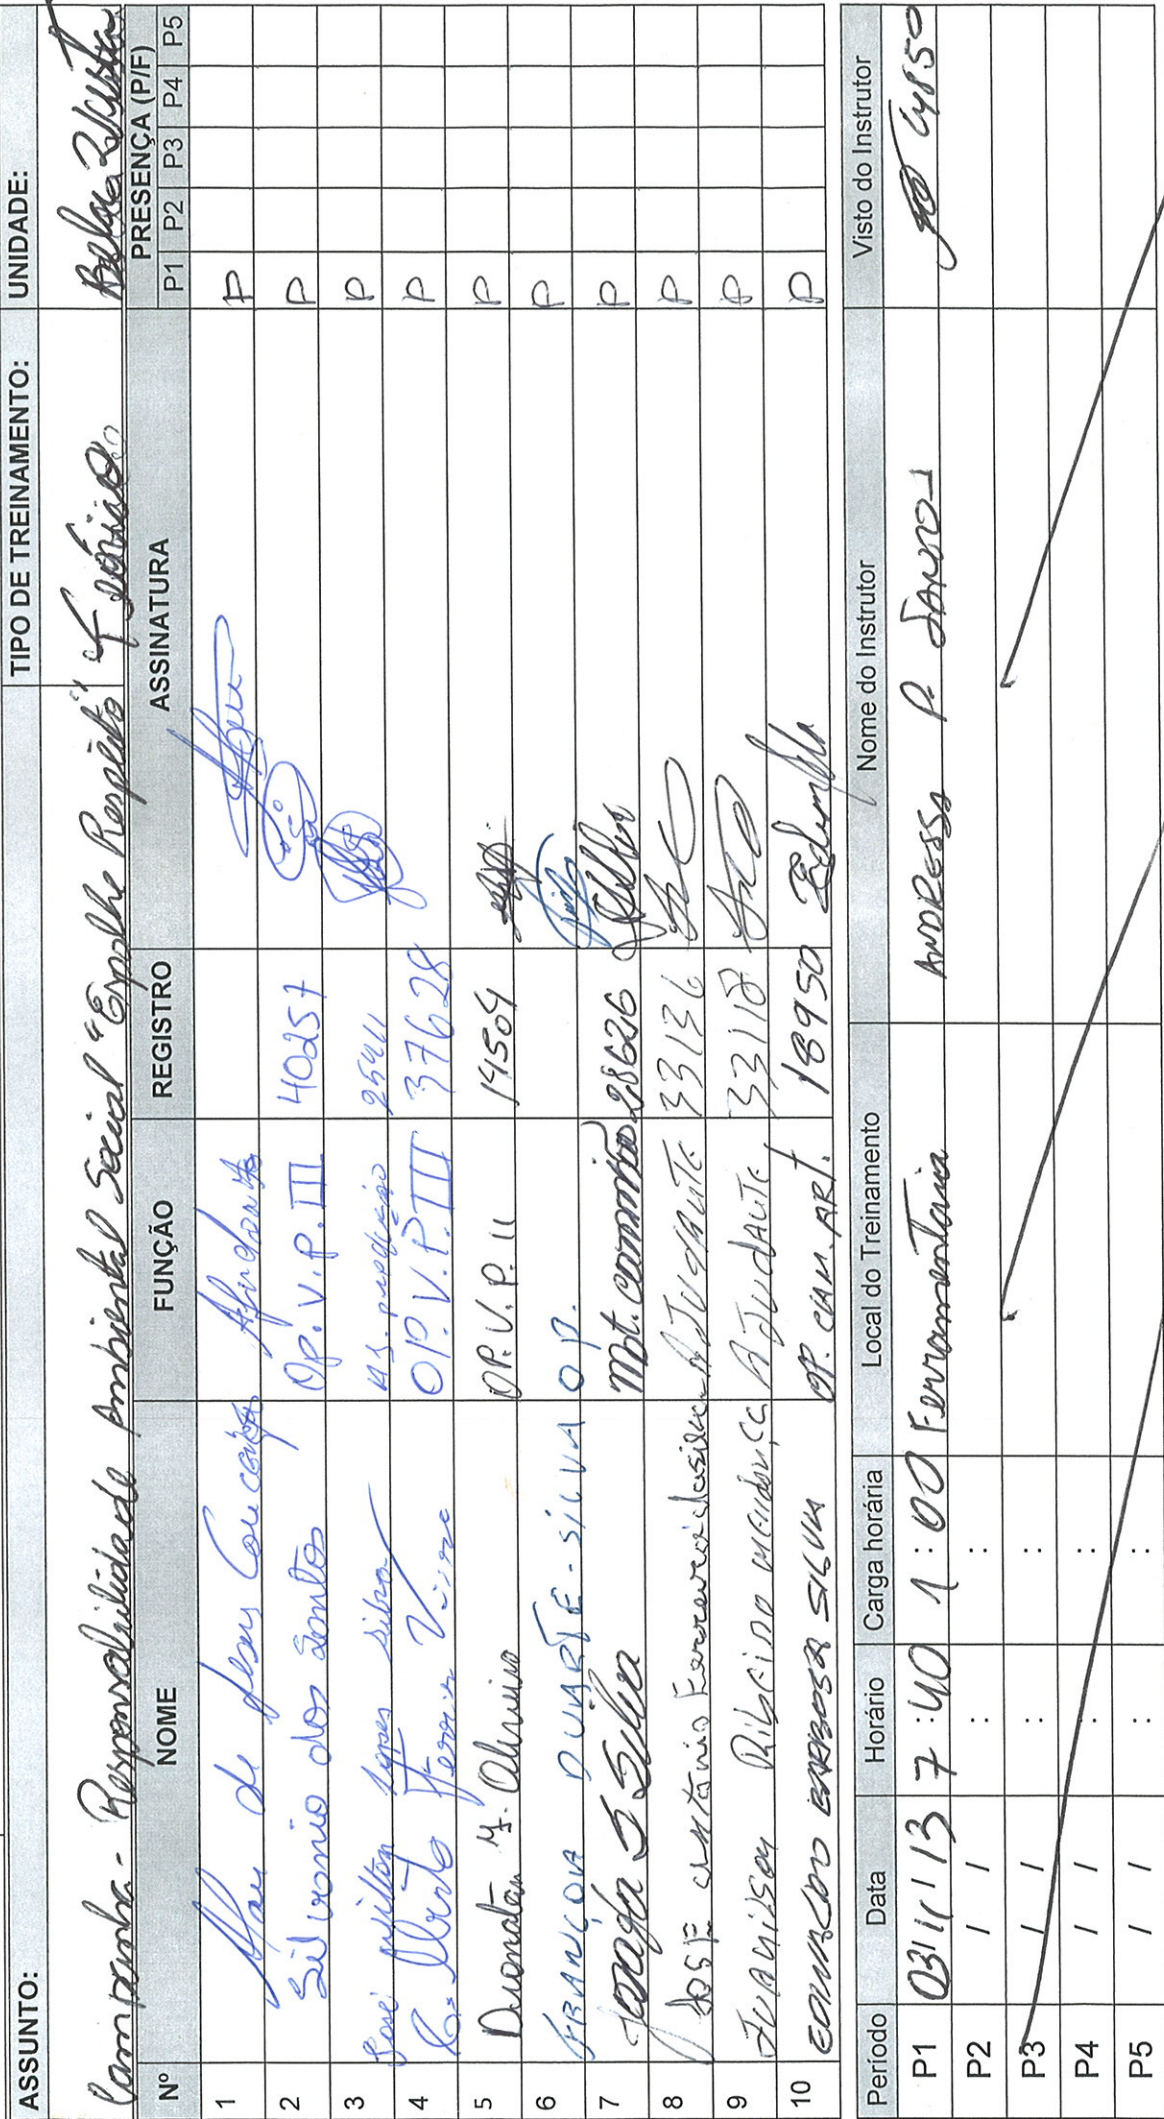 ASSUNTO: TIPO DE TREINAMENTO: UNIDADE:
Campanha - Responsabilidade Ambiental Social "Espalhe Respeito"
Nº NOME FUNÇÃO REGISTRO ASSINATURA PRESENÇA (P/F)
P1 P2 P3 P4 P5
1 de Jesus Conceição Ajudante P
2 Silvonio dos Santos Op. V. P. III 40257 P
3 José nilton lopes silva produção 25411 P
4 C. Alberto Ferreira OP. V. P. III 37628 P
5 Oliveira OP. V. P. II 14504 P
6 FRANÇOIA DUARTE - SILVA OP. P
7 Jonga S Silva Mot. caminhão 28626 P
8 JOSE antonio Ferreira da silva AJUDANTE 33136 P
9 Juanilson Ribeiro mendonça AJUDANTE 33118 P
10 EDIVALDO BARBOSA SILVA OP. CAM. ART. 18950 P
Período Data Horário Carga horária Local do Treinamento Nome do Instrutor Visto do Instrutor
P1 03/11/13 7:40 1:00 Ferramentaria ANDRESSA P. SANTOS
P2 / / : :
P3 / / : :
P4 / / : :
P5 / / : :